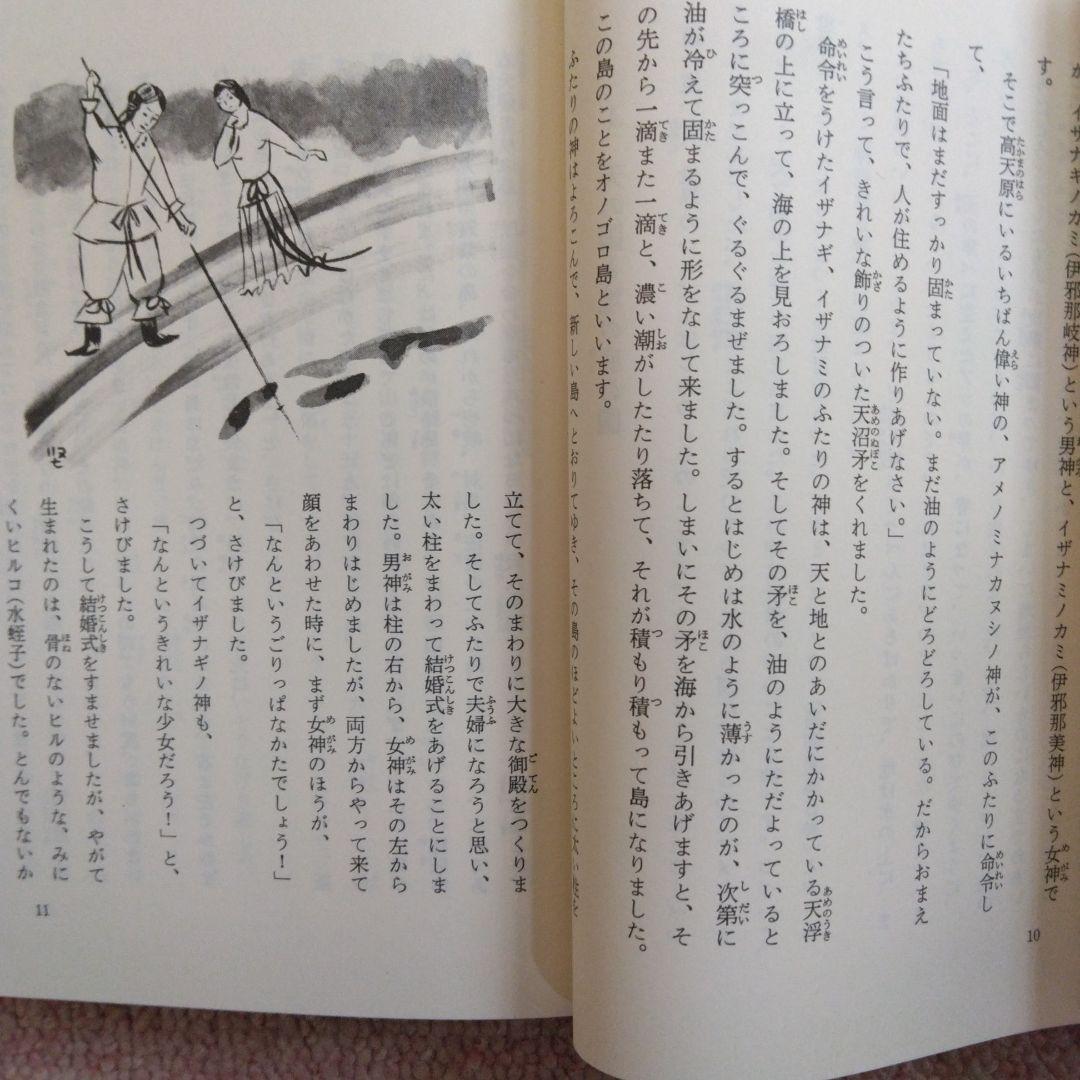 が、イザナギノカミ(伊邪那岐神)という男神と、イザナミノカミ(伊邪那美神)という女神で
す。
そこで高天原にいるいちばん偉い神の、アメノミナカヌシノ神が、このふたりに命令し
て、
「地面はまだすっかり固まっていない。まだ油のようにどろどろしている。だからおまえ
たちふたりで、人が住めるように作りあげなさい。」
こう言って、きれいな飾りのついた天沼矛をくれました。
命令をうけたイザナギ、イザナミのふたりの神は、天と地とのあいだにかかっている天浮
橋の上に立って、海の上を見おろしました。そしてその矛を、油のようにただよっていると
ころに突っこんで、ぐるぐるまぜました。するとはじめは水のように薄かったのが、次第に
油が冷えて固まるように形をなして来ました。しまいにその矛を海から引きあげますと、そ
の先から一滴また一滴と、濃い潮がしたたり落ちて、それが積もり積もって島になりました。
この島のことをオノゴロ島といいます。
ふたりの神はよろこんで、新しい島へとおりてゆき、その島のほどよいところに太い柱を
10
立てて、そのまわりに大きな御殿をつくりま
した。そしてふたりで夫婦になろうと思い、
太い柱をまわって結婚式をあげることにしま
した。男神は柱の右から、女神はその左から
まわりはじめましたが、両方からやって来て
顔をあわせた時に、まず女神のほうが、
「なんというごりっぱなかたでしょう!」
と、さけびました。
つづいてイザナギノ神も、
「なんというきれいな少女だろう!」と、
さけびました。
こうして結婚式をすませましたが、やがて
生まれたのは、骨のないヒルのような、みに
くいヒルコ(水蛭子)でした。とんでもないか
11